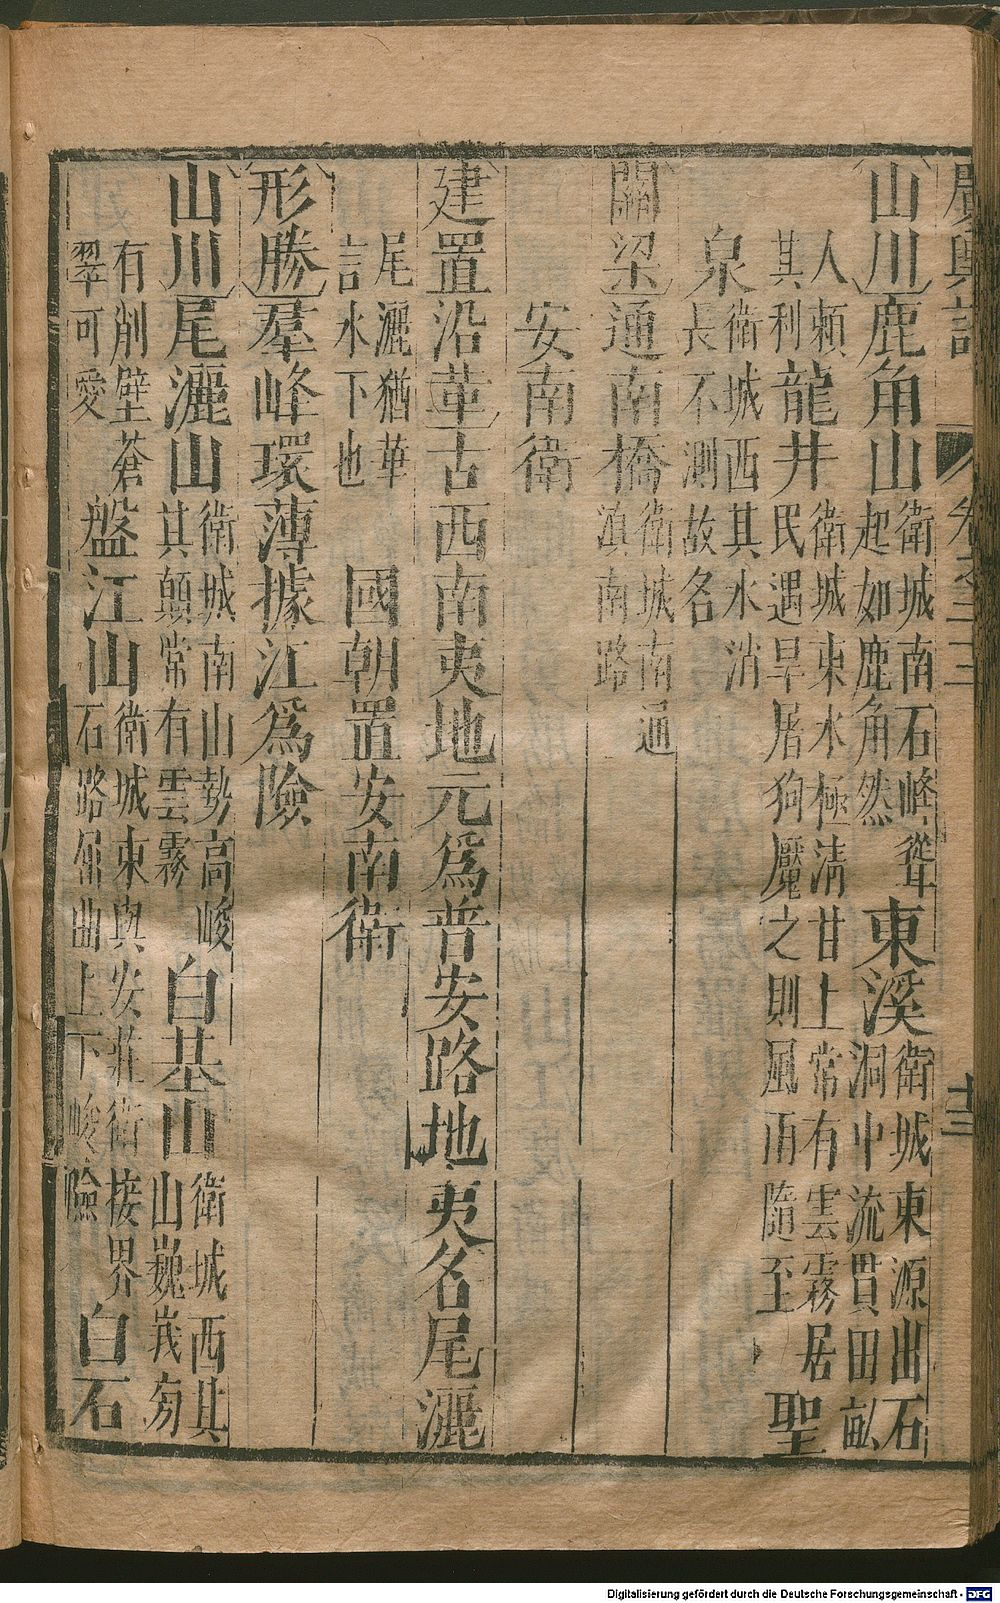 廣輿記　卷之二十三　十三
山川鹿角山衛城南石峰聳起如鹿角然東溪衛城東源出石洞中流貫田畝
人賴其利龍井衛城東水極清甘上常有雲霧居民遇旱居狗魘之則風雨隨至聖
泉衛城西其水消長不測故名
關梁通南橋衛城南通滇南路
安南衛
建置沿革古西南夷地元為普安路地夷名尾灑
尾灑猶華言水下也國朝置安南衛
形勝羣峰環薄據江為險
山川尾灑山衛城南山勢高峻其顛常有雲霧白基山衛城西其山巍峩旁
有削壁蒼翠可愛盤江山衛城東與安莊衛接界石路屈曲上下峻險白石
Digitalisierung gefördert durch die Deutsche Forschungsgemeinschaft - DFG